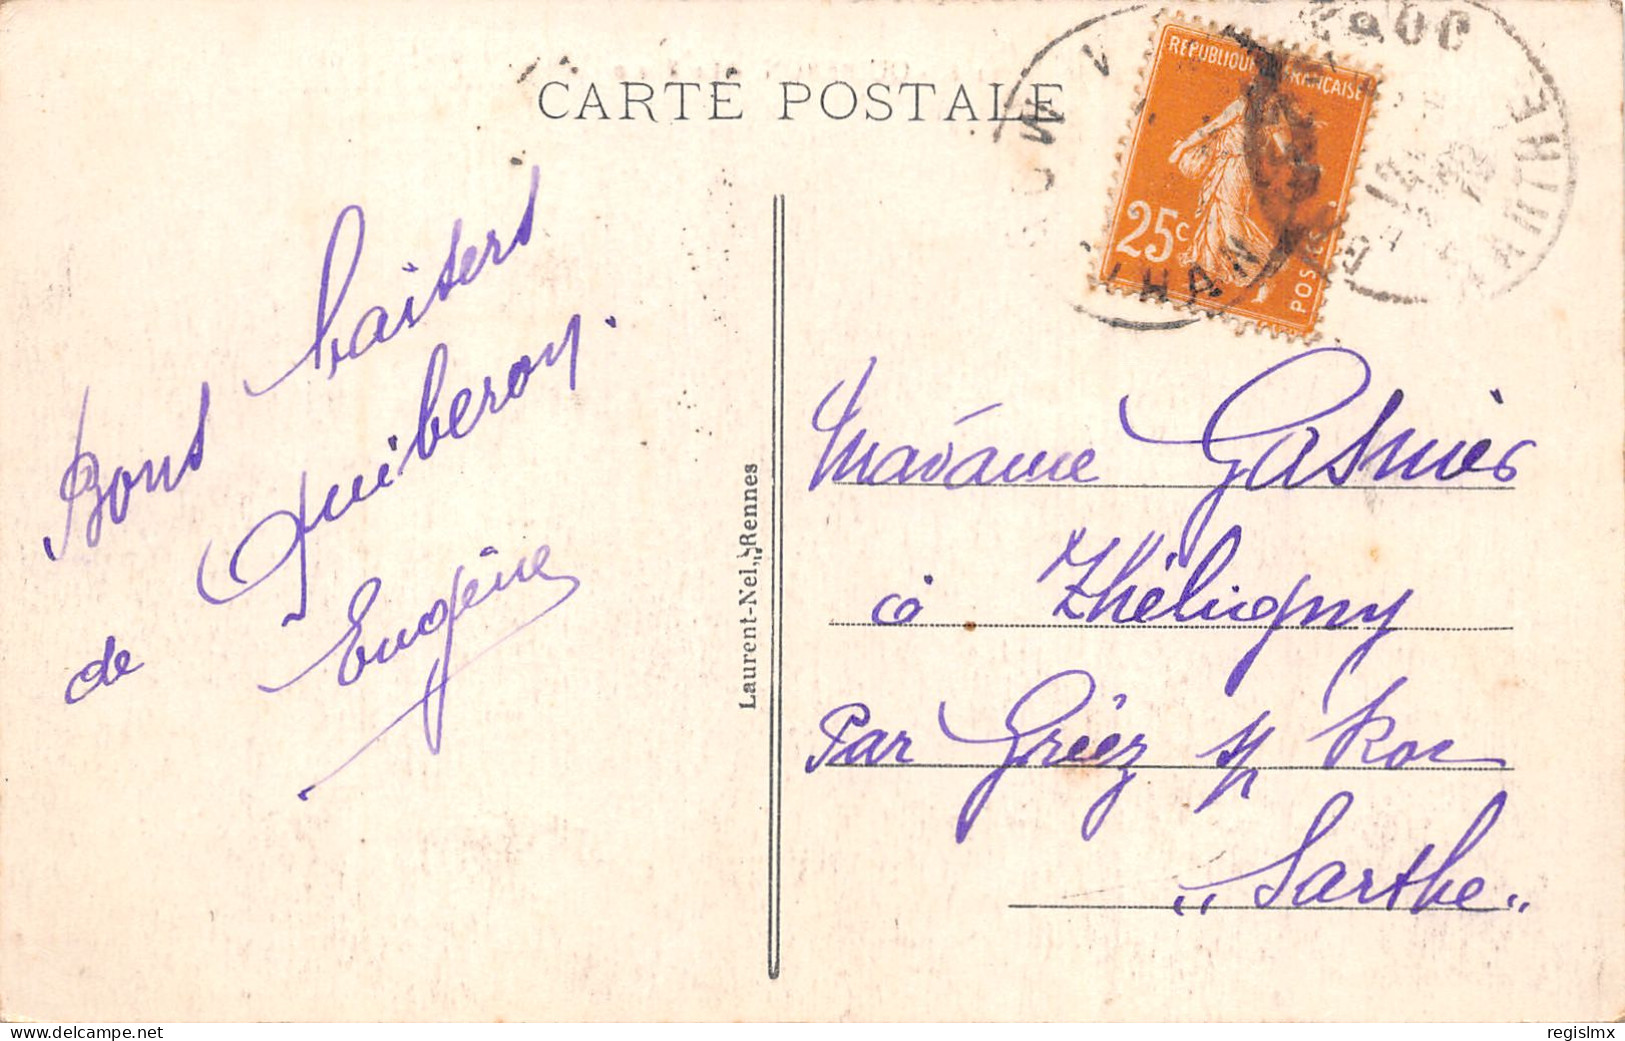 CARTE POSTALE
REPUBLIQUE FRANÇAISE
25c
POSTES
Bons baisers
de Quiberon.
Eugène
Laurent-Nel, Rennes
Madame Gasnier
à Théligny
Par Gréez s/ Roc
"Sarthe"
delcampe.net
regislmx